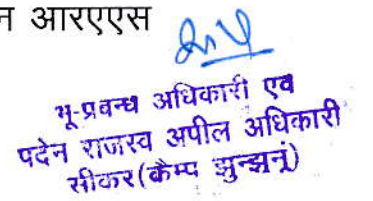 न आरएएस
भू-प्रबन्ध अधिकारी एवं
पदेन राजस्व अपील अधिकारी
सीकर(कैम्प झुन्झुनूं)